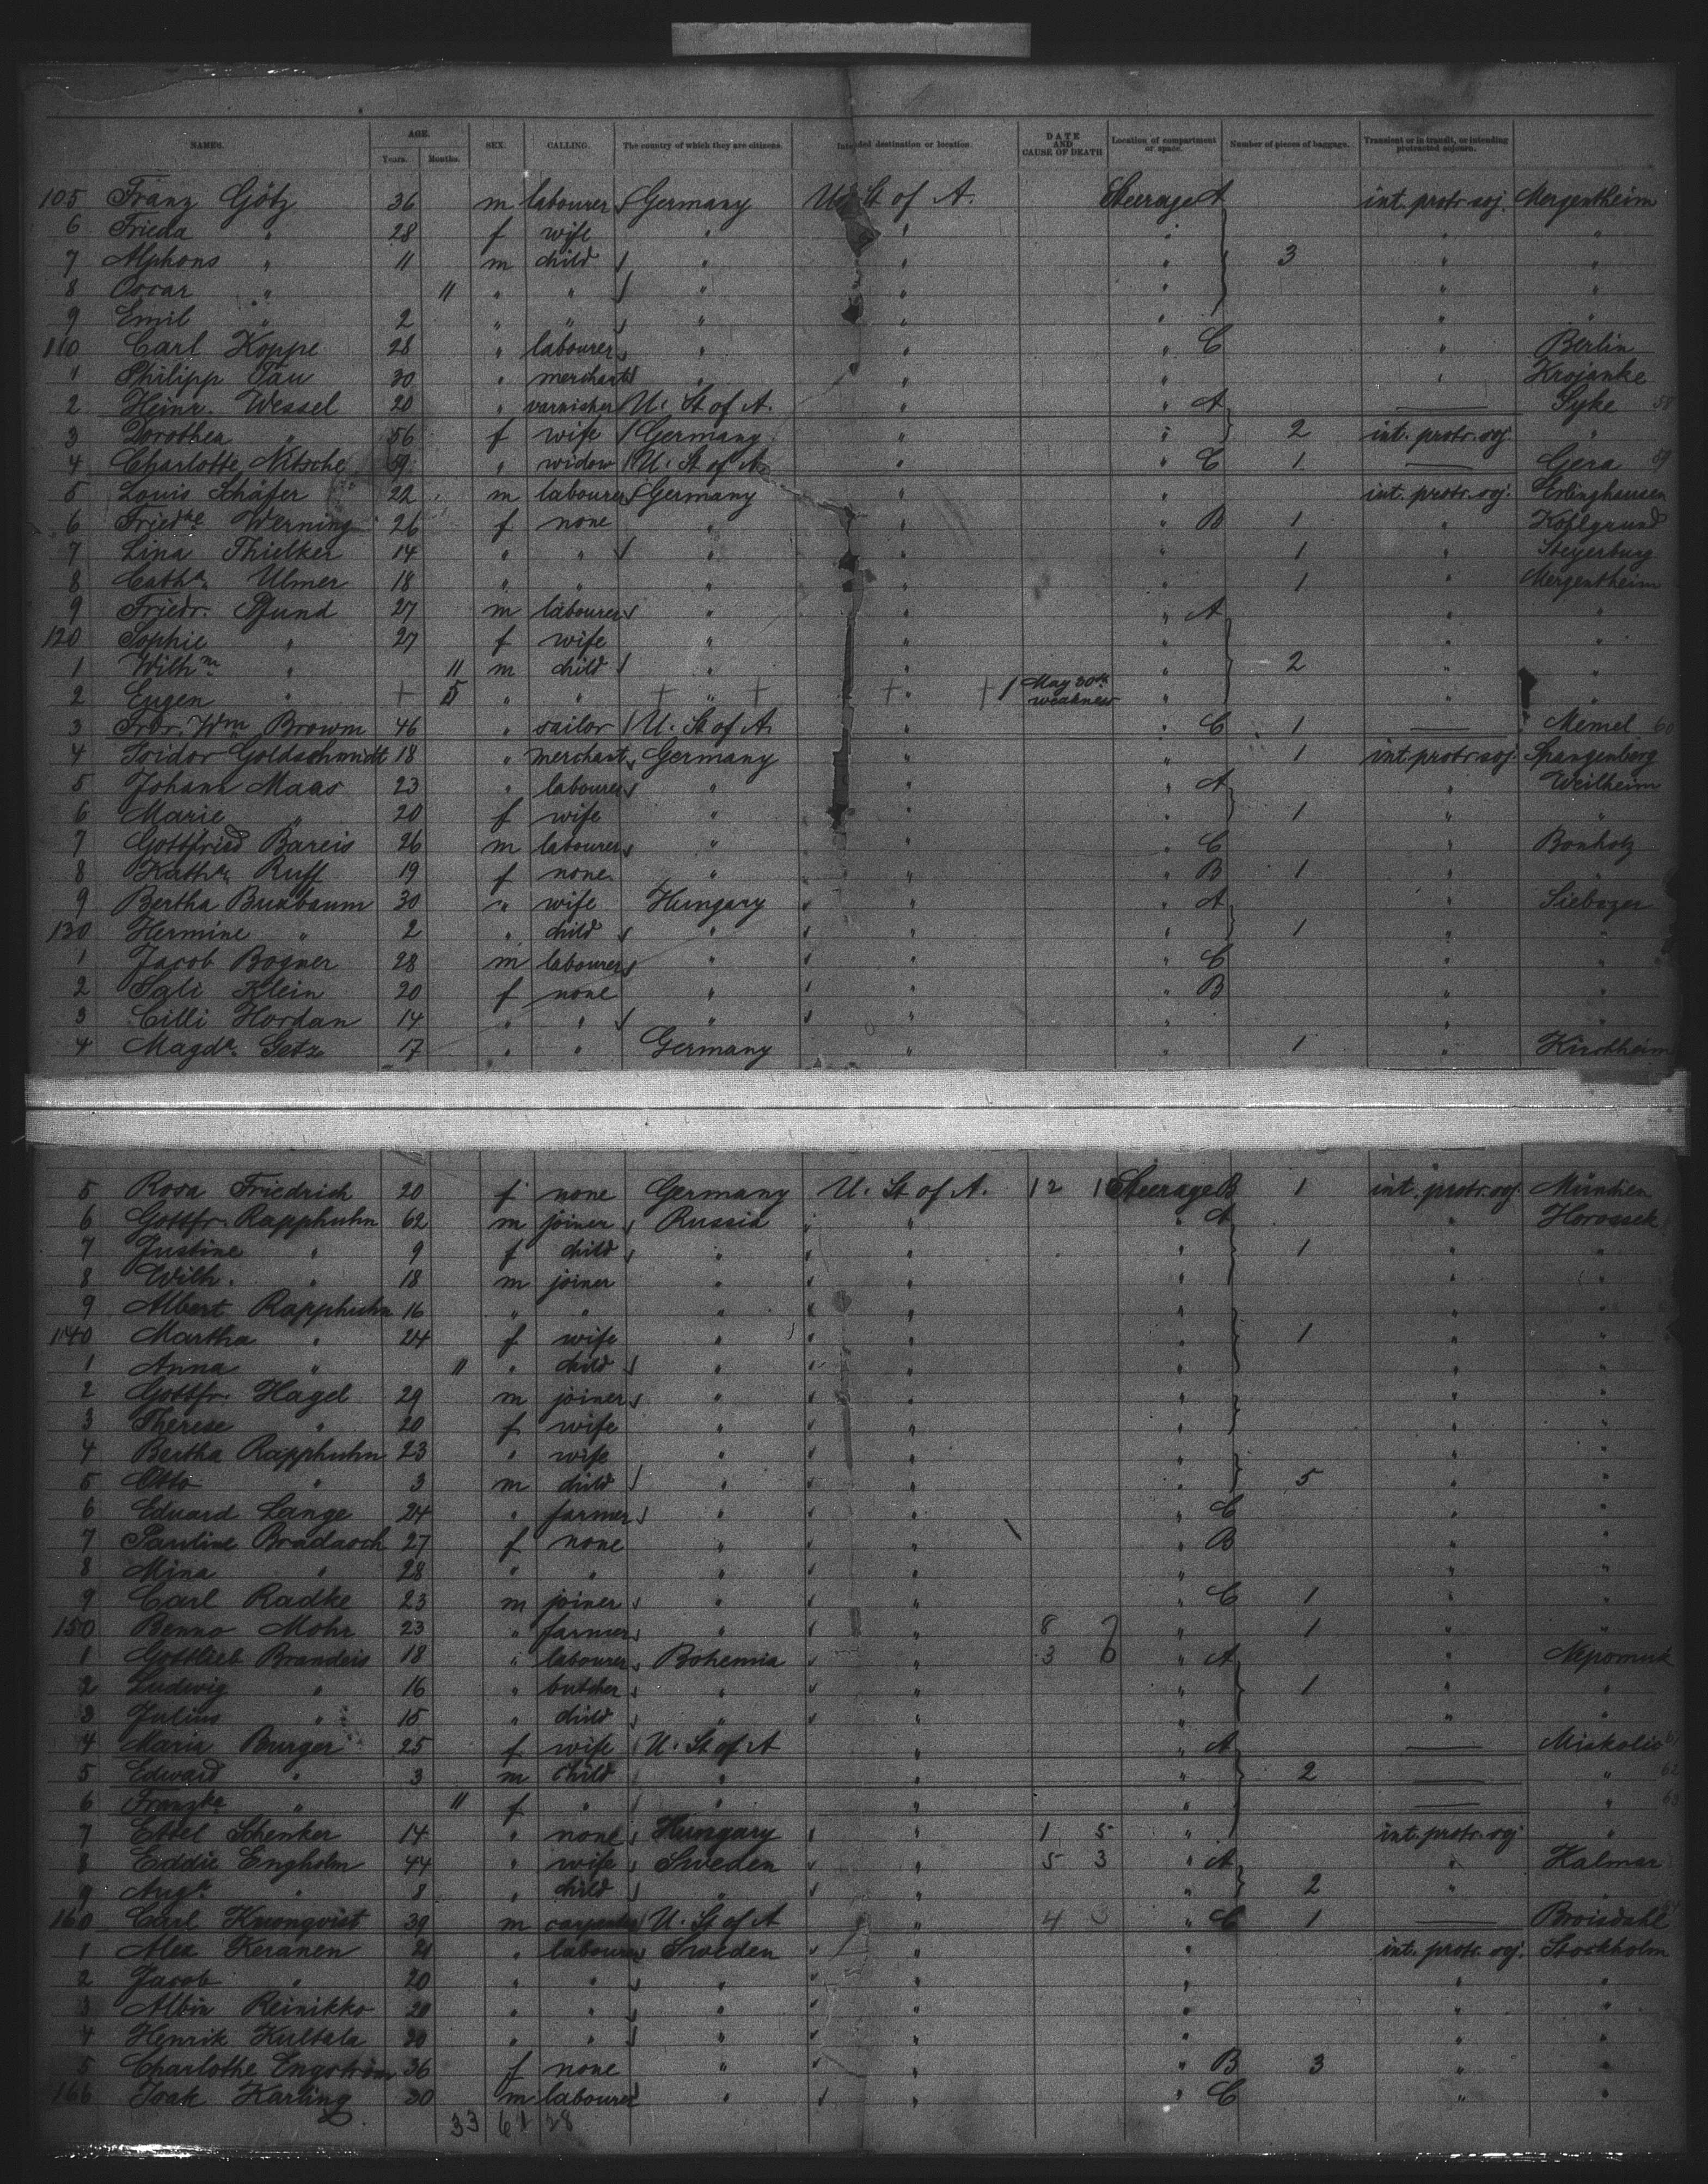 NAMES. AGE. Years. Months. SEX. CALLING. The country of which they are citizens. Intended destination or location. DATE AND CAUSE OF DEATH Location of compartment or space. Number of pieces of baggage. Transient or in transit, or intending protracted sojourn.
105 Franz Götz 36 m labourer Germany U. St of A. Steerage A int. protr. soj. Mergentheim
6 Frieda " 28 f wife " " " " "
7 Alphons " 11 m child " " " 3 " "
8 Oscar " 11 " " " " " " "
9 Emil " 2 " " " " " " "
110 Carl Koppe 28 " labourer " " " C " Berlin
1 Philipp Tau 30 " merchant " " " " Krojanke
2 Heinr. Wessel 20 " varnisher U. St of A. " " A — Syke 58
3 Dorothea " 56 f wife Germany " " 2 int. protr. soj. "
4 Charlotte Nitsche 59 " widow U. St of A. " " C 1 — Gera 59
5 Louis Schäfer 22 m labourer Germany " " int. protr. soj. Erlinghausen
6 Friedke Werning 26 f none " " " B 1 " Kohlgrund
7 Lina Thielker 14 " " " " " 1 " Steyerburg
8 Catha. Ulmer 18 " " " " " 1 " Mergentheim
9 Friedr. Pfund 27 m labourer " " " A " "
120 Sophie " 27 f wife " " " " "
1 Wilhm " 11 m child " " " 2 " "
2 Eugen " + 5 " " + " + + " + 1 May 30th weakness " " "
3 Frdr. Wm Browm 46 " sailor U. St of A. " " C 1 — Memel 60
4 Isidor Goldschmidt 18 " merchant Germany " " 1 int. protr. soj. Spangenberg
5 Johann Maas 23 " labourer " " " A " Weilheim
6 Marie " 20 f wife " " " 1 " "
7 Gottfried Bareis 26 m labourer " " " C " Bonholz
8 Katha. Ruff 19 f none " " " B 1 " "
9 Bertha Buxbaum 30 " wife Hungary " " A " Siebozer
130 Hermine " 2 " child " " " 1 " "
1 Jacob Bogner 28 m labourer " " " C " "
2 Sali Klein 20 f none " " " B " "
3 Cilli Hordan 14 " " " " " " "
4 Magda. Getz 17 " " Germany " " 1 " Kirchheim
5 Rosa Friedrich 20 f none Germany U. St of A. 12 1 Steerage B 1 int. protr. soj. München
6 Gottfr. Rapphuhn 62 m joiner Russia " " A " Horossek
7 Justine " 9 f child " " " 1 " "
8 Wilh. " 18 m joiner " " " " "
9 Albert Rapphuhn 16 " " " " " " "
140 Martha " 24 f wife " " " 1 " "
1 Anna " 11 " child " " " " "
2 Gottfr. Hagel 29 m joiner " " " " "
3 Therese " 20 f wife " " " " "
4 Bertha Rapphuhn 23 " wife " " " " "
5 Otto " 3 m child " " " 5 " "
6 Eduard Lange 24 " farmer " " " C " "
7 Pauline Bradasch 27 f none " " " B " "
8 Mina " 28 " " " " " " "
9 Carl Radke 23 m joiner " " " C 1 " "
150 Benno Mohr 23 " farmer " " 8 7 " 1 " "
1 Gottlieb Brandeis 18 " labourer Bohemia " 3 6 " A " Nepomuk
2 Ludwig " 16 " butcher " " " 1 " "
3 Julius " 15 " child " " " " "
4 Maria Burger 25 f wife U. St of A " " A — Miskolic 61
5 Edward " 3 m child " " " 2 — " 62
6 Franzka " 11 f " " " " — " 63
7 Ettel Schenker 14 " none Hungary " 1 5 " int. protr. soj. "
8 Eddie Engholm 44 " wife Sweden " 5 3 " A " Kalmar
9 Auga. " 8 " child " " " 2 " "
160 Carl Kronqvist 39 m carpenter U. St of A " 4 3 " C 1 — Broisdahl
1 Alex Keranen 21 " labourer Sweden " " int. protr. soj. Stockholm
2 Jacob " 20 " " " " " " "
3 Albin Reinikko 20 " " " " " " "
4 Henrik Kultala 30 " " " " " " "
5 Charlothe Engström 36 f none " " " B 3 " "
166 Isak Karling 30 m labourer " " " C " "
33 61 28